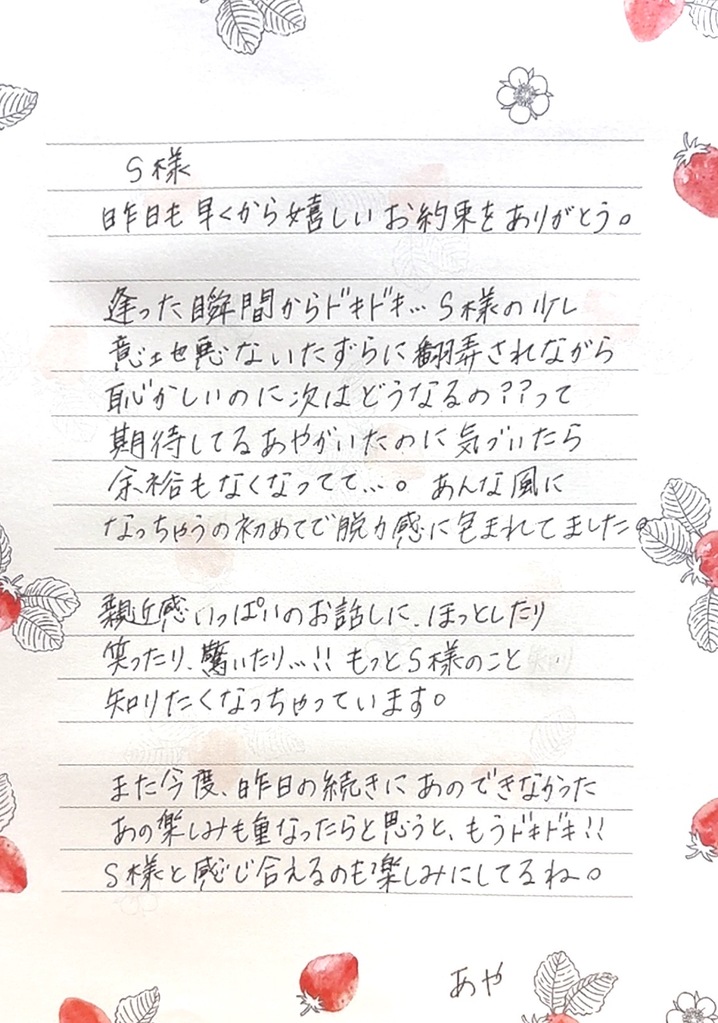 S様
昨日も早くから嬉しいお約束をありがとう。
逢った瞬間からドキドキ… S様の少し
意地悪ないたずらに翻弄されながら
恥かしいのに次はどうなるの??って
期待してるあやがいたのに気づいたら
余裕もなくなってて…。あんな風に
なっちゃうの初めてで脱力感に包まれてました。
親近感いっぱいのお話しに、ほっとしたり
笑ったり、驚いたり…!! もっとS様のこと
知りたくなっちゃっています。
また今度、昨日の続きにあのできなかった
あの楽しみも重なったらと思うと、もうドキドキ!!
S様と感じ合えるのも楽しみにしてるね。
あや